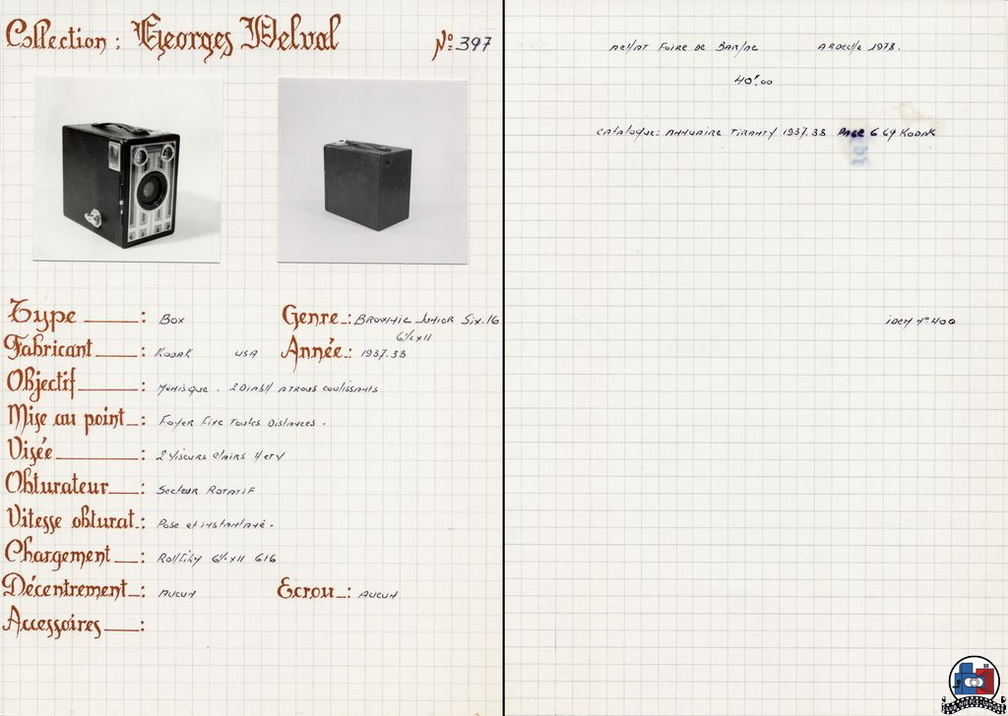 Collection : Georges Delval
N°: 397
Type : Box
Genre : Brownie Junior Six-16
6½x11
Fabricant : Kodak USA
Année : 1937.38
Objectif : Ménisque - 2 Diash à trous coulissants
Mise au point : Foyer Fixe Toutes Distances -
Visée : 2 Viseurs clairs H et V
Obturateur : Secteur Rotatif
Vitesse obturat. : Pose et instantané -
Chargement : Rollfilm 6½x11 616
Décentrement : Aucun
Ecrou : Aucun
Accessoires :
Achat Foire de Barjac Ardeche 1978.
40F,00
Catalogue: Annuaire Tiranty 1937.38 Page 6 69 Kodak
idem n° 400